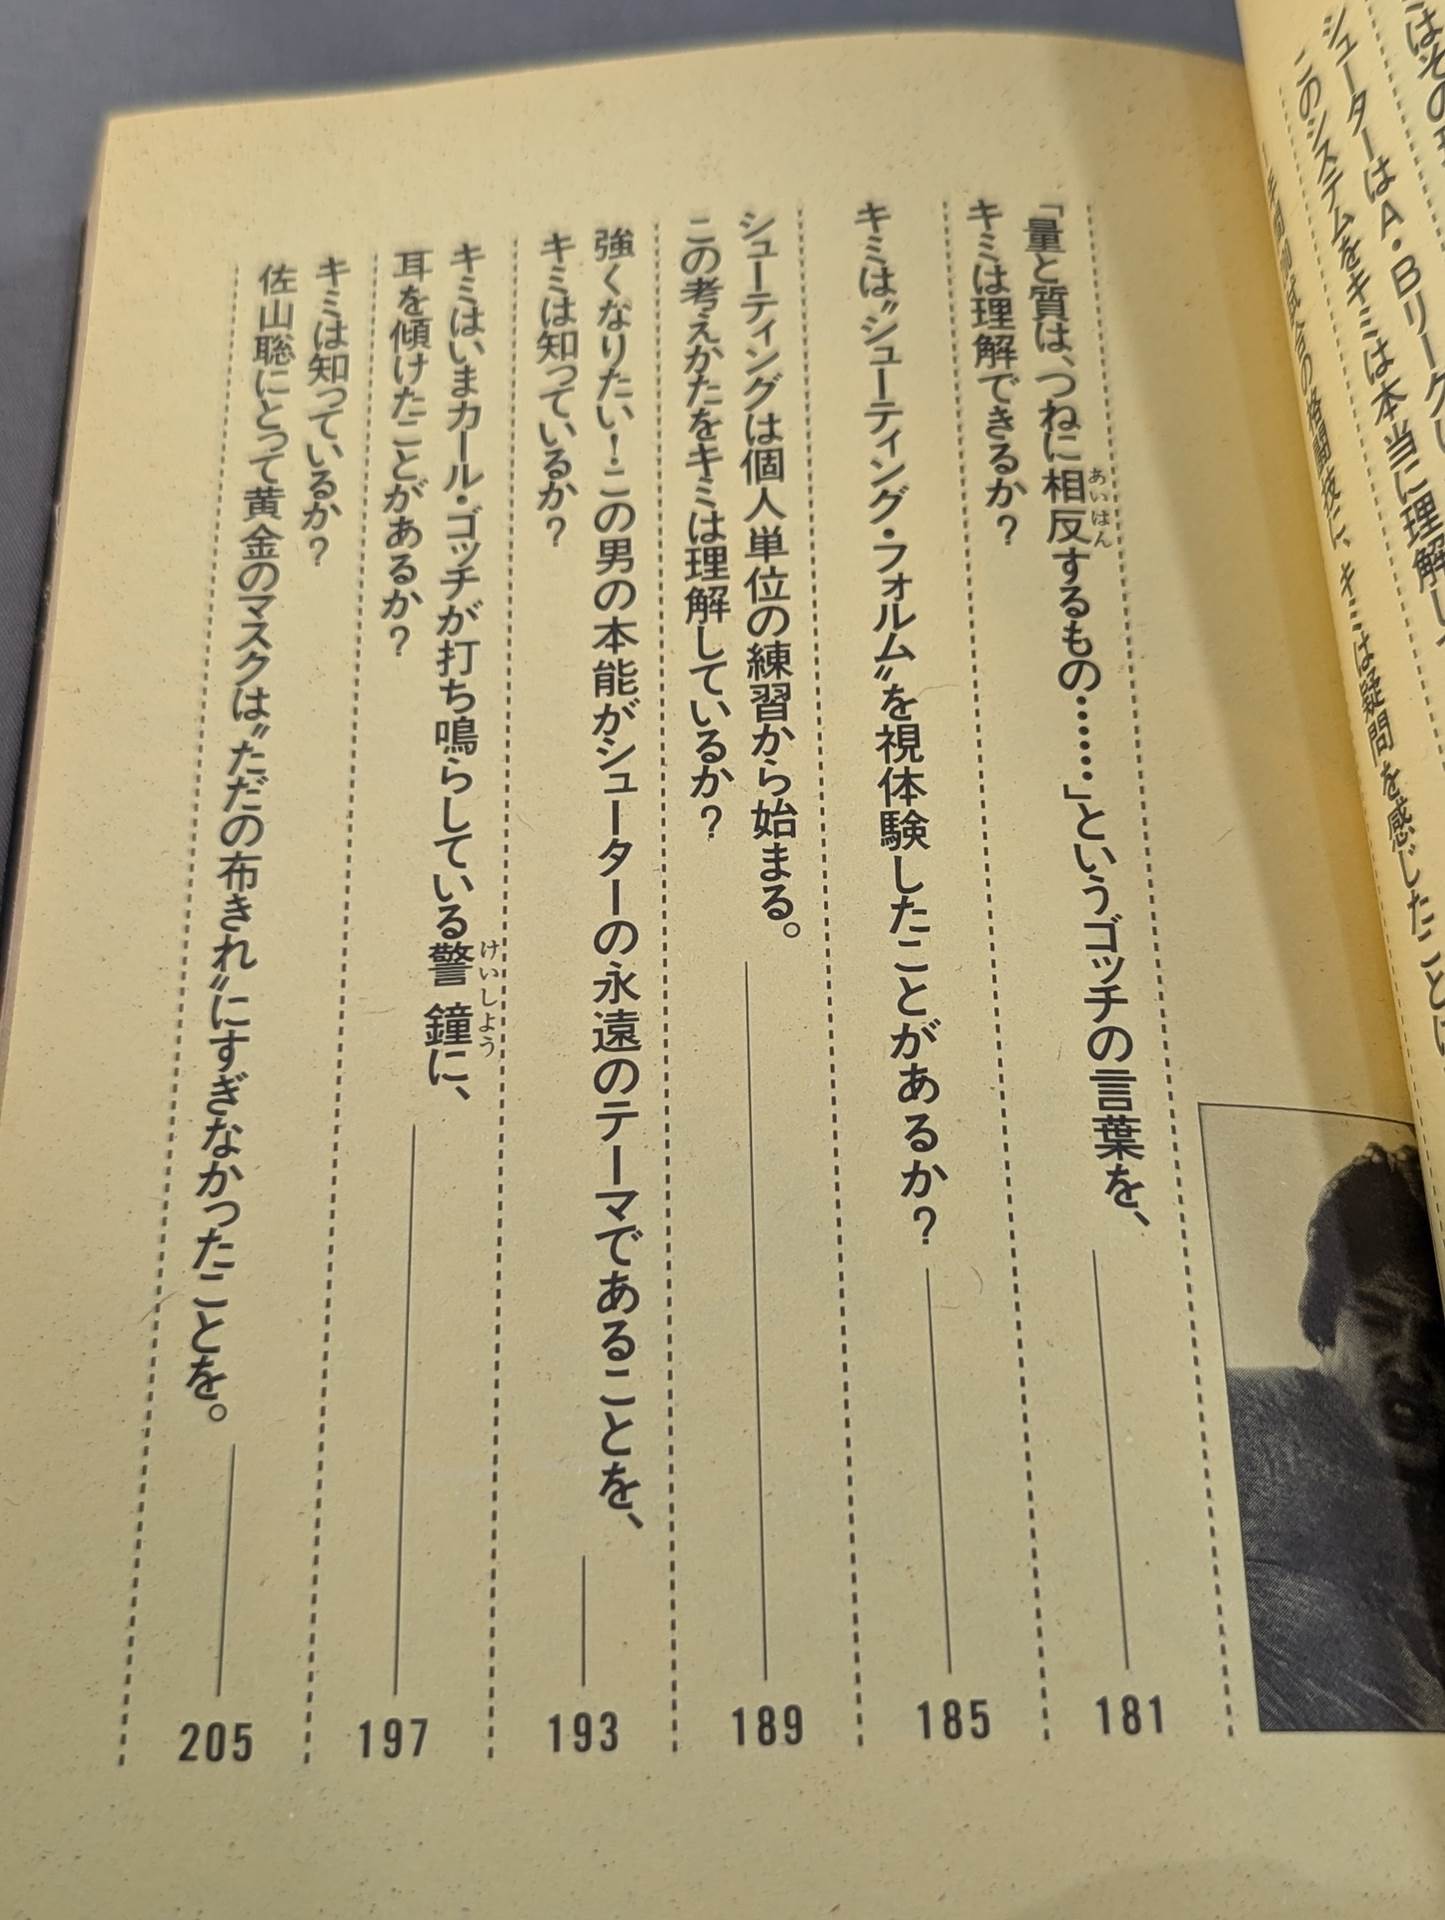 はその
シューターはA・Bリーグ
このシステムをキミは本当に理解して
格闘技に、キミは疑問を感じたことは
「量と質は、つねに相反するもの……」というゴッチの言葉を、
あいはん
キミは理解できるか?
181
キミは〝シューティング・フォルム〟を視体験したことがあるか?
185
シューティングは個人単位の練習から始まる。
この考えかたをキミは理解しているか?
189
強くなりたい!この男の本能がシューターの永遠のテーマであることを、
キミは知っているか?
193
キミはいまカール・ゴッチが打ち鳴らしている警鐘に、
けいしよう
耳を傾けたことがあるか?
197
キミは知っているか?
佐山聡にとって黄金のマスクは〝ただの布きれ〟にすぎなかったことを。
205